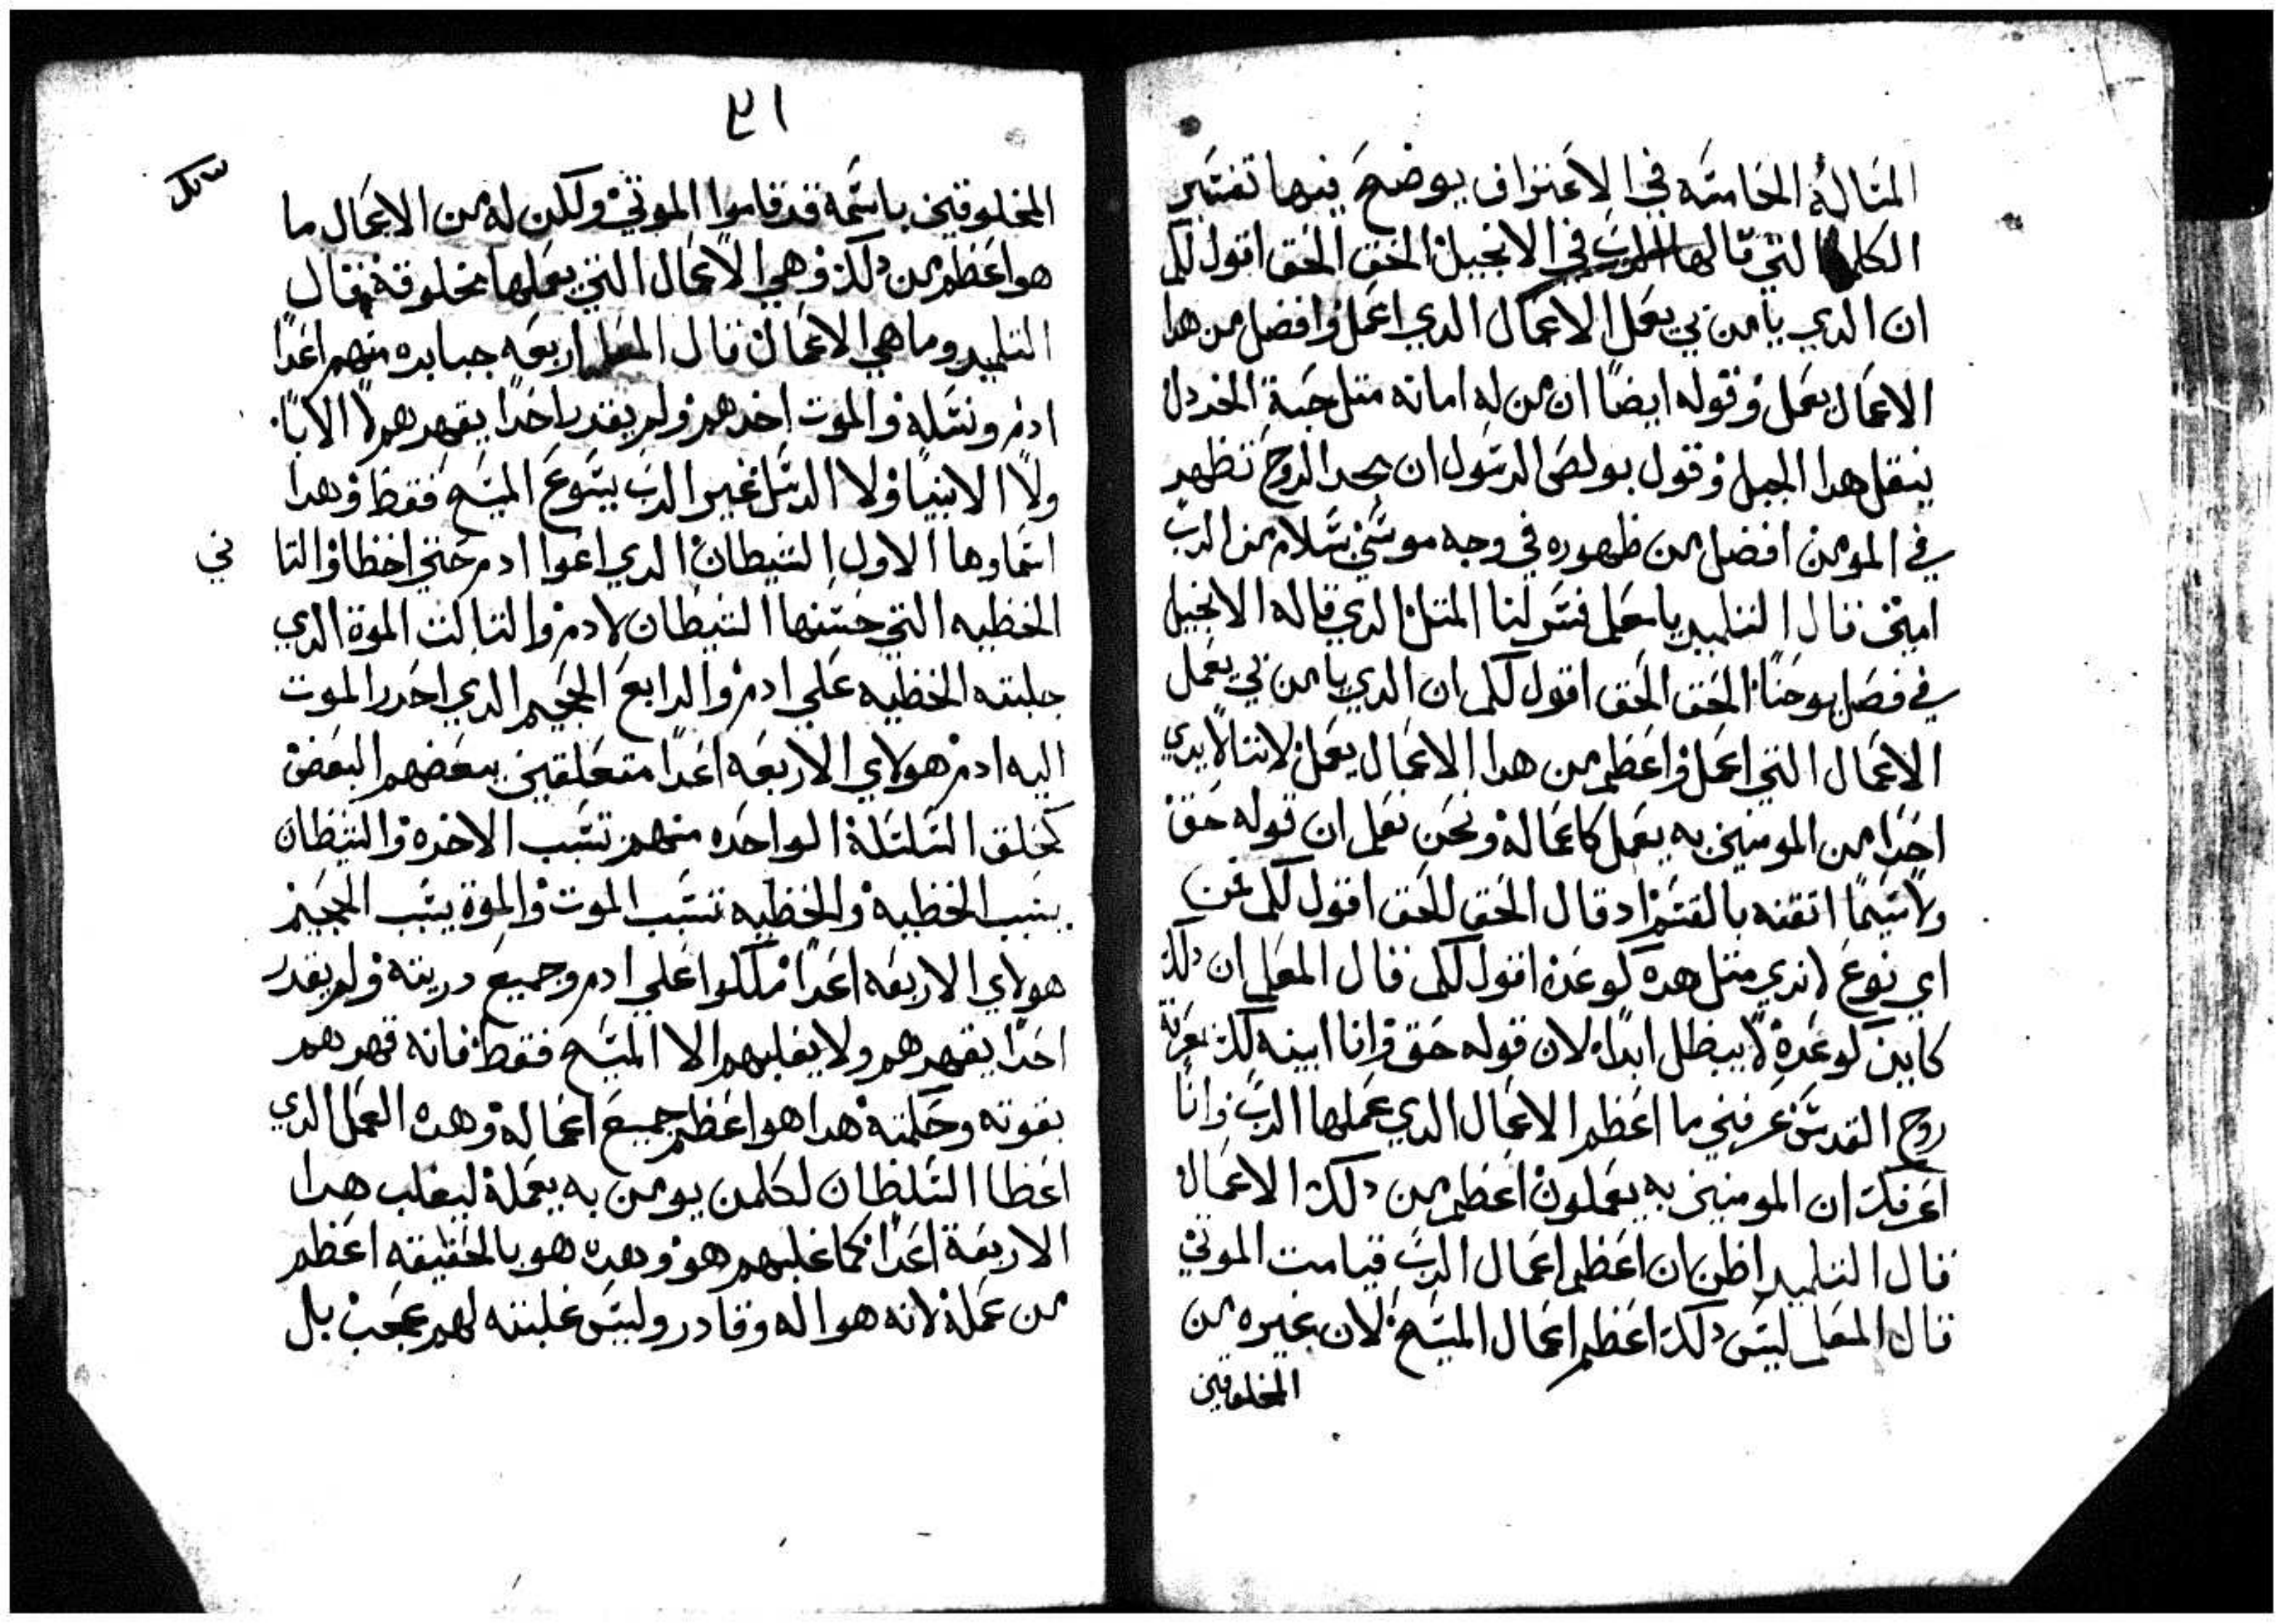 المقالة الخامسه في الاعتراف يوضح فيها تفسير
الكلام التي قالها الرب في الانجيل الحق الحق اقول لكم
ان الدي يامن بي يعمل الاعمال الدي اعمل وافضل من هدا
الاعمال يعمل وقوله ايضا ان من له امانه متل حبة الخردل
ينقل هدا الجبل وقول بولص الرسول ان مجد الروح تظهر
في المومن افضل من ظهوره في وجه موسي سلام من الرب
امين قال التلميد يا معلم فسر لنا المتل الدي قاله الانجيل
في فصل يوحنا الحق الحق اقول لكم ان الدي يامن بي يعمل
الاعمال التي اعمل واعظم من هدا الاعمال يعمل لاننا لا نري
احدا من المومنين به يعمل كاعماله ونحن نعلم ان قوله حق
ولاسيما اتقنه بالقسم اد قال الحق الحق اقول لكم عن
اي نوع لا ندي متل هده كوعده اقول لكم قال المعلم ان دلك
كاين كوعده لا يبطل ابدا لان قوله حق وانا ابينه لك بمعرفة
روح القدس عرفني ما اعظم الاعمال الدي عملها الرب وانا
اعرفك ان المومنين به يعملون اعظم من دلك الاعمال
قال التلميد اظن ان اعظم اعمال الرب قيامت الموتي
قال المعلم ليس دلك اعظم اعمال المسيح لان غيره من
المخلوقين
٣١
المخلوقين باسمه قد قاموا الموتي ولكن له من الاعمال ما
هو اعظم من دلك وهي الاعمال التي يعملها مخلوقة فقال
التلميد وما هي الاعمال قال المعلم اربعه جبابره منهم اعدا
ادم ونسله والموت اخدهم ولم يقدر احدا يقهرهم لا الابا
ولا الانبيا ولا الرسل غير الرب يسوع المسيح فقط وهدا
اسماوها الاول الشيطان الدي اغوا ادم حتي اخطا والتا ني
الخطيه التي حسنها الشيطان لادم والتالت الموة الدي
جلبته الخطيه علي ادم والرابع الجحيم الدي احدر الموت
اليه ادم هولاي الاربعه اعدا متعلقين ببعضهم البعض
كحلق السلسلة الواحده منهم تسبب الاخره والشيطان
يسبب الخطيه والخطيه تسبب الموت والموة يسبب الجحيم
هولاي الاربعه اعدا ملكوا علي ادم وجميع دريته ولم يقدر
احدا يقهرهم ولا يغلبهم الا المسيح فقط فانه قهرهم
بقوته وحكمته هدا هو اعظم جميع اعماله وهده العمل الدي
اعطا السلطان لكلمن يومن به يعمله ليغلب هدا
الاربعة اعدا كما غلبهم هو وهده هو بالحقيقه اعظم
من عمله لانه هو اله وقادر وليس غلبته لهم عجب بل